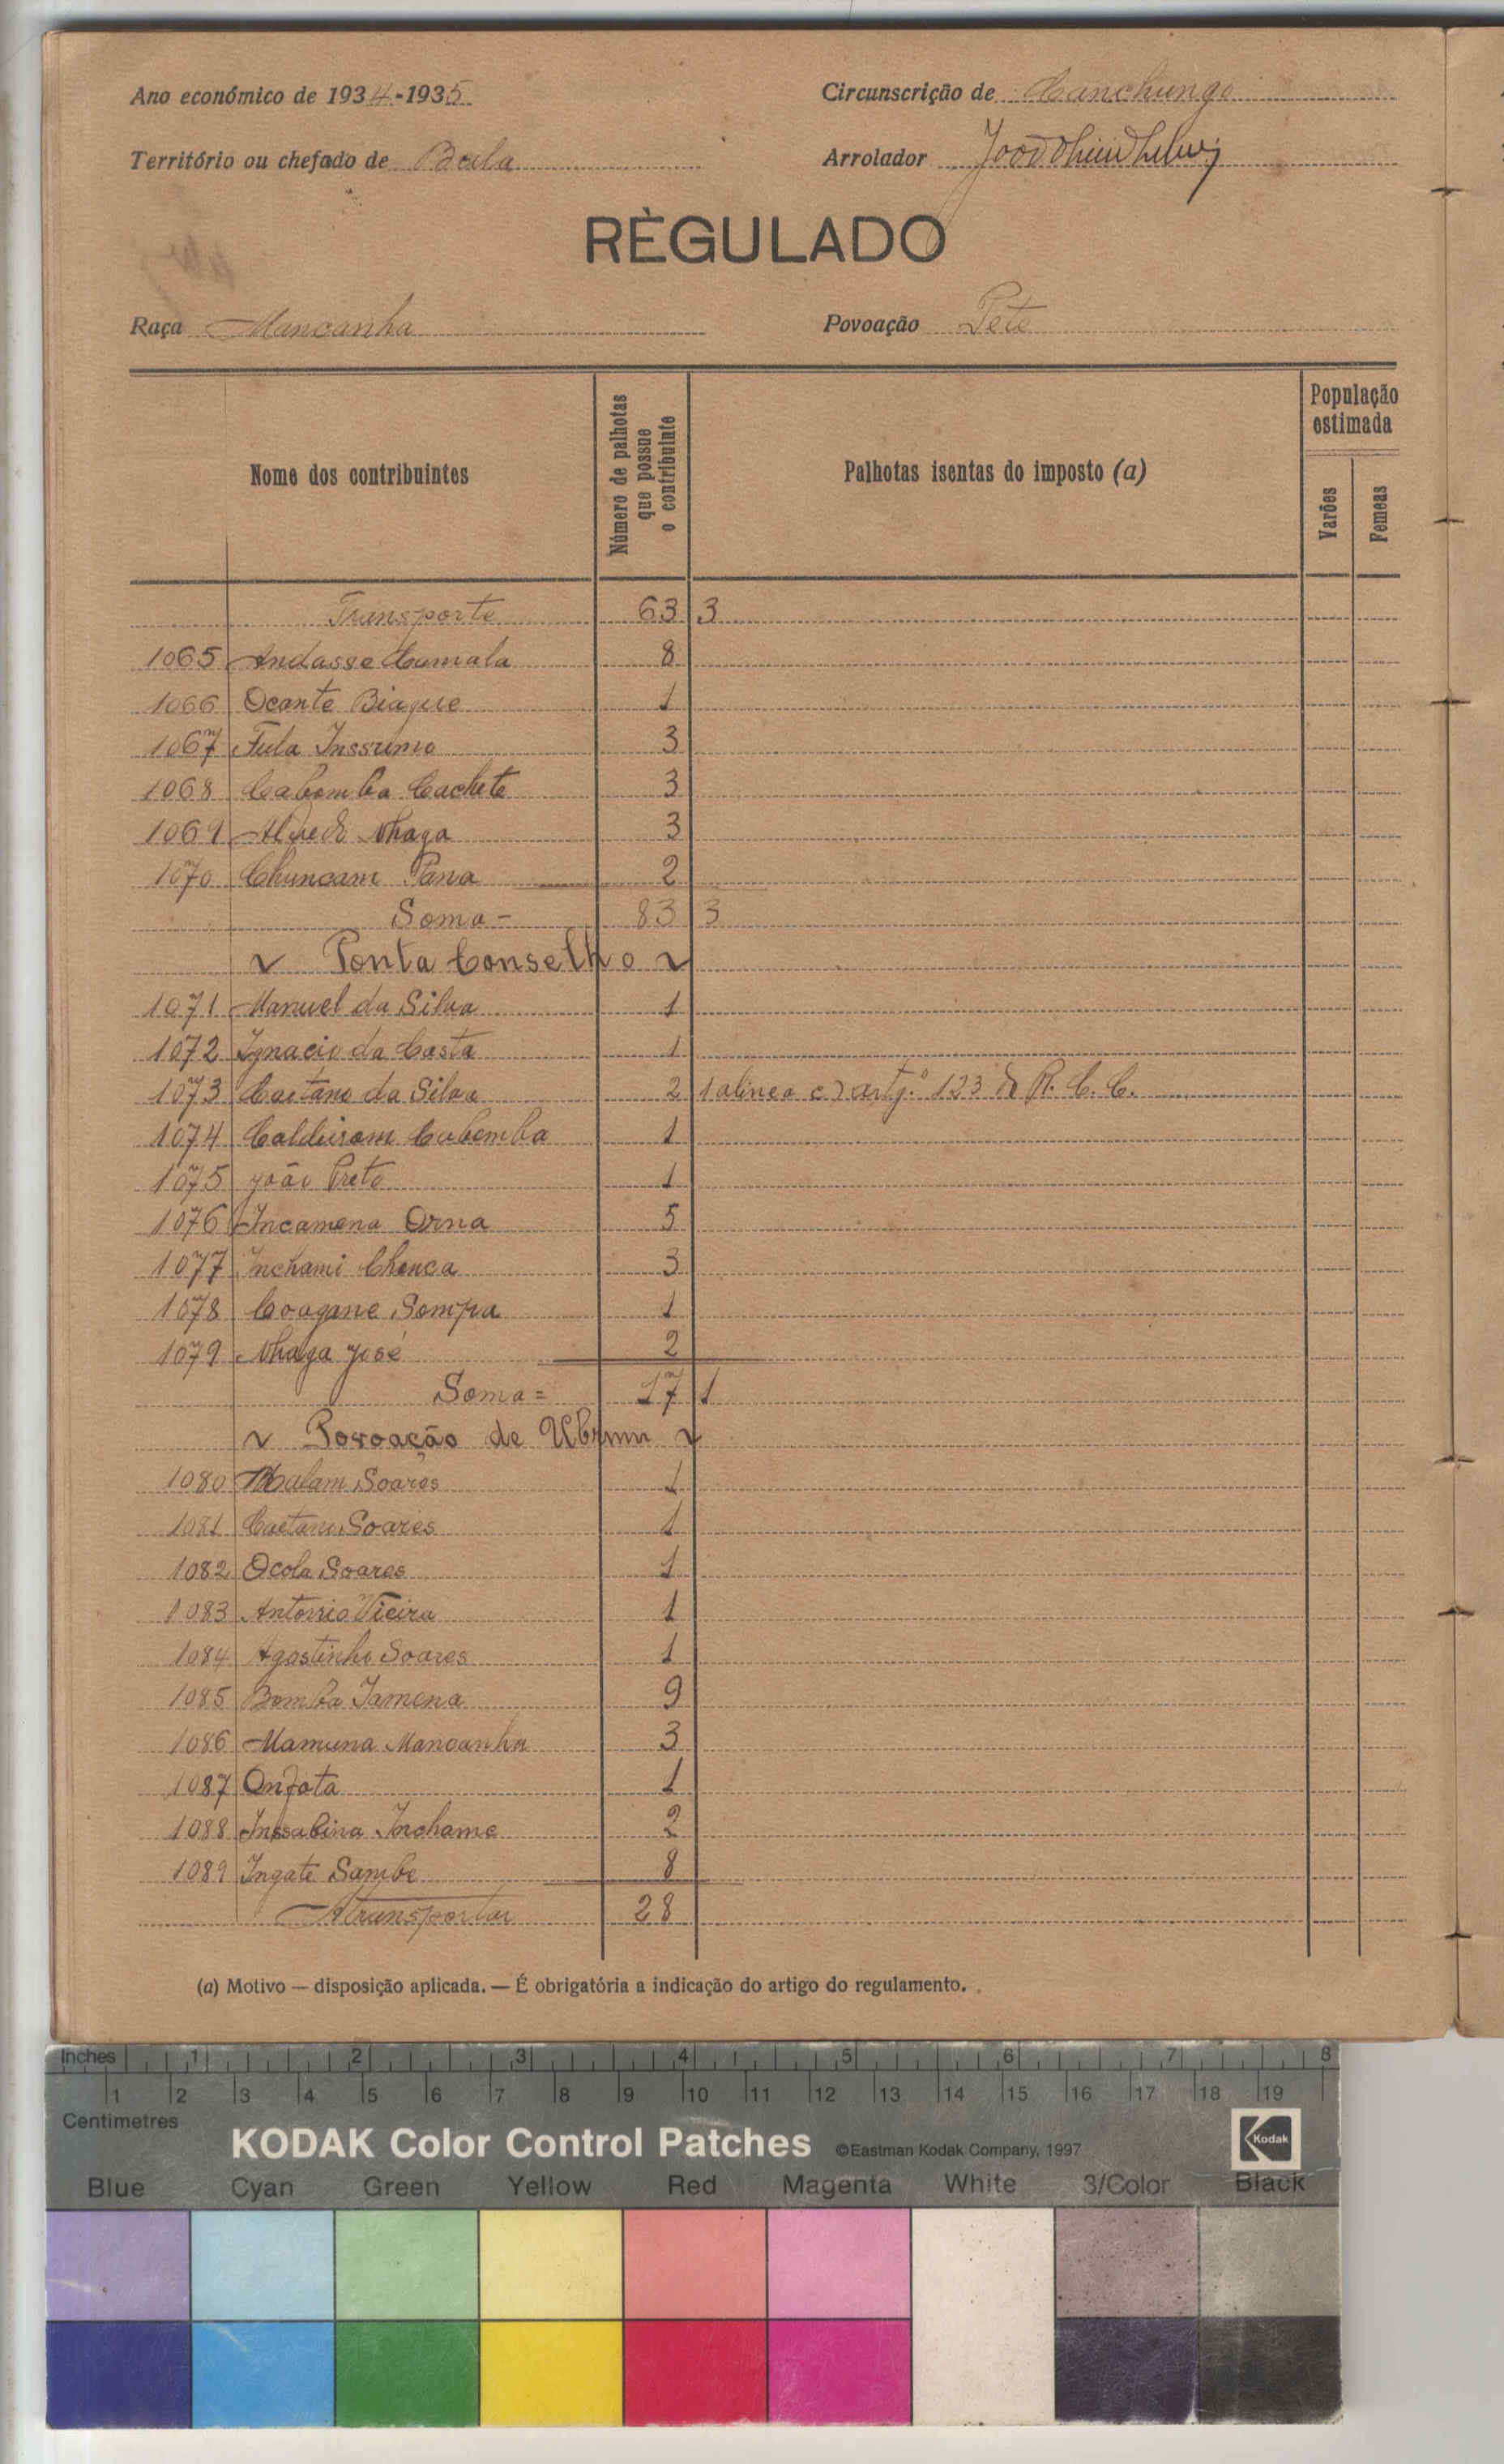 Ano económico de 1934-1935
Circunscrição de Canchungo
Território ou chefado de Bula
Arrolador
RÈGULADO
Raça Mancanha
Povoação Pete
Nome dos contribuintes
Número de palhotas que possue o contribuinte
Palhotas isentas do imposto (a)
População estimada
Varões
Femeas
Transporte 63 3
1065 Andasse Camala 8
1066 Ocante Biague 1
1067 Fula 3
1068 Cabomba Cachete 3
1069 Alfredo Nhaga 3
1070 Chuncam Pana 2
Soma - 83 3
Ponta Conselho
1071 Manuel da Silva 1
1072 Ignacio da Costa 1
1073 Caetano da Silva 2 1 alinea c) artg.º 123 do R. C. C.
1074 Cabomba 1
1075 João Preto 1
1076 Incamena Orna 5
1077 Inchami Chenca 3
1078 Coagane Sompa 1
1079 Nhaga José 2
Soma = 17 1
Povoação de
1080 Malam Soares 1
1081 Caetano Soares 1
1082 Ocola Soares 1
1083 Antonio Vieira 1
1084 Agostinho Soares 1
1085 Bomba Jamena 9
1086 Mamuna Mancanha 3
1087 Onfota 1
1088 Inssabina Inchame 2
1089 Ingate Sambe 8
A transportar 28
(a) Motivo — disposição aplicada. — É obrigatória a indicação do artigo do regulamento.
Inches 1 2 3 4 5 6 7 8
1 2 3 4 5 6 7 8 9 10 11 12 13 14 15 16 17 18 19
Centimetres
KODAK Color Control Patches ©Eastman Kodak Company, 1997 Kodak
Blue Cyan Green Yellow Red Magenta White 3/Color Black